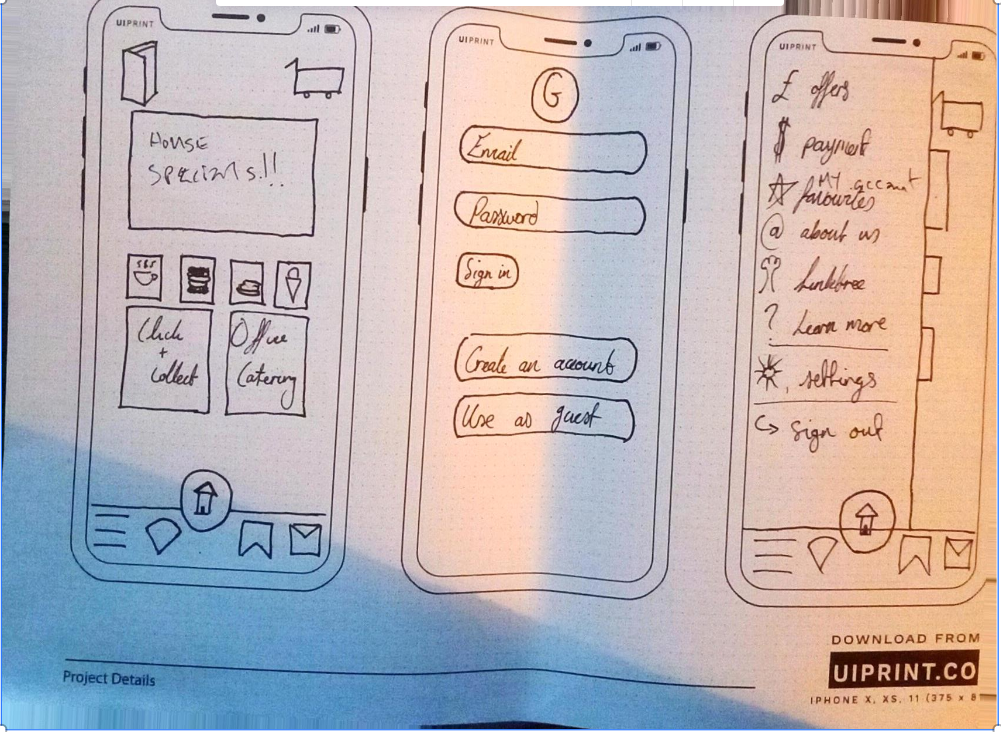 UIPRINT
HOUSE
SPECIALS.!!
Click
+
Collect
Office
Catering
UIPRINT
G
Email
Password
Sign in
Create an account
Use as guest
UIPRINT
£ offers
$ payment
MY account
favourites
@ about us
Linktree
? Learn more
settings
Sign out
Project Details
DOWNLOAD FROM
UIPRINT.CO
IPHONE X, XS, 11 (375 x 8